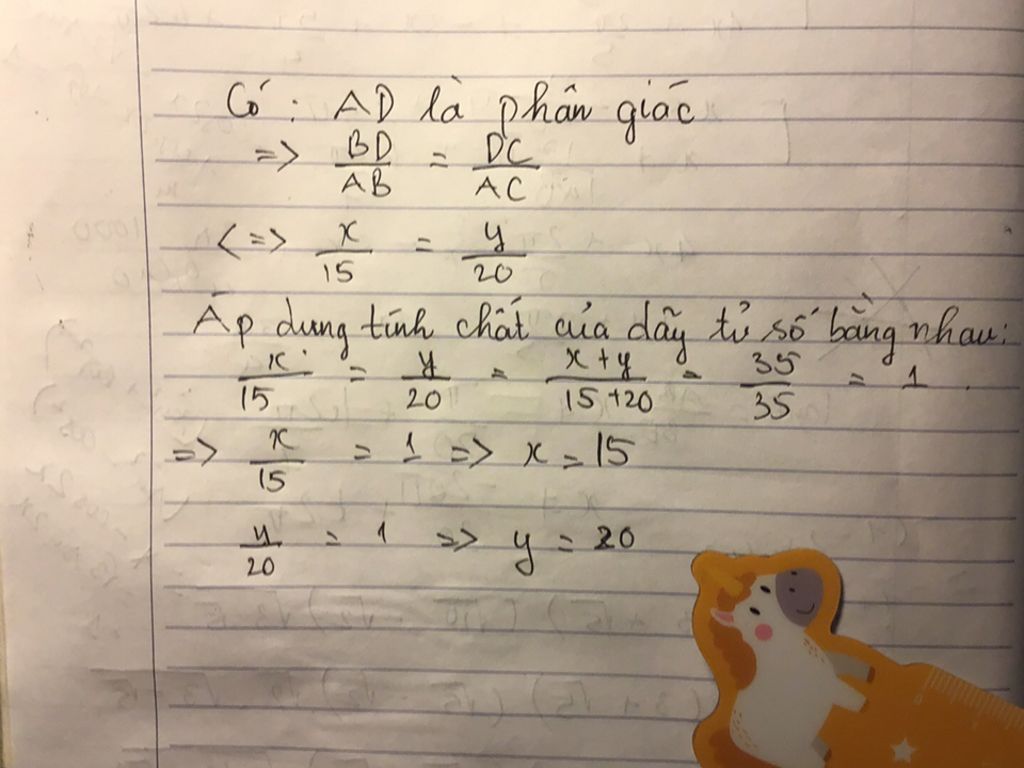 Có : AD là phân giác
=> BD/AB = DC/AC
<=> x/15 = y/20
Áp dung tính chất của dãy tỉ số bằng nhau:
x/15 = y/20 = x+y/15+20 = 35/35 = 1
=> x/15 = 1 => x = 15
y/20 = 1 => y = 20